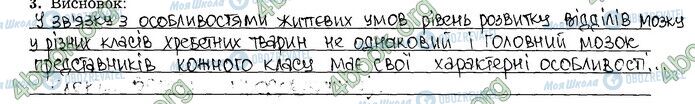 3. Висновок:
У зв'язку з особливостями життєвих умов рівень розвитку відділів мозку
у різних класів хребетних тварин не однаковий і головний мозок
представників кожного класу має свої характерні особливості.